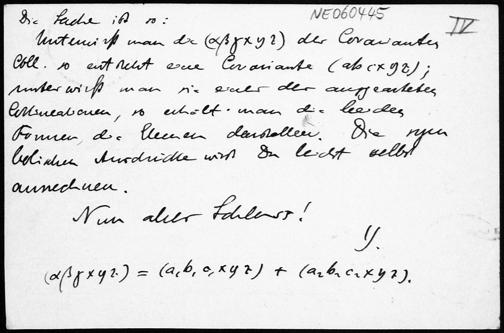 NE060445
IV
Die Sache ist so:
Unterwirft man die (αβγxyz) der Covarianten
Coll. so entsteht eine Covariante (abcxyz);
unterwirft man sie einer der ausgearteten
Collineationen, so erhält man die beiden
Formen, die Ebenen darstellen. Die sym
bolischen Ausdrücke wirst Du leicht selbst
ausrechnen.
Nun aber Schluss!
(αβγxyz) = (a₁b₁c₁xyz) + (a₂b₂c₂xyz).